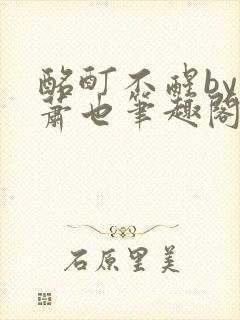 酩酊不醒by
萧也笔趣阁
石原里美